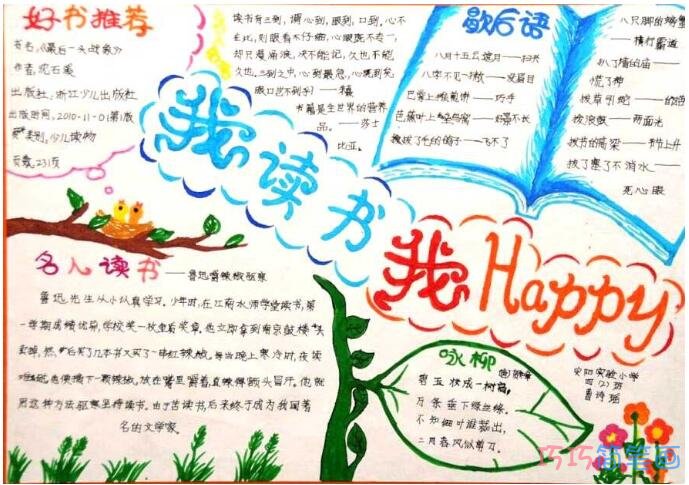 好书推荐
书名:《最后一头战象》
作者:沈石溪
出版社:浙江少儿出版社
出版时间:2010-11-01第1版
类别:少儿读物
页数:231页
读书有三到,谓心到,眼到,口到。心不
在此,则眼看不仔细,心眼既不专一,
却只漫浪诵读,决不能记,久也不能
久也。三到之中,心到最急,心既到矣,
眼口岂不到乎?
书籍是全世界的营养
品。——莎士
比亚。
歇后语
八月十五云遮月——扫兴
八字不见一撇——
巴掌上摊煎饼——巧手
芭蕉叶上垒鸟窝——好景不长
拔了毛的鸽子——飞不了
八只脚的螃蟹
——横行霸道
扒了墙的庙——
慌了神
拔草引蛇——
拔浪鼓——两面光
拔节的高粱——节节上升
拔了塞子不淌水——
死心眼
我读书
我Happy
名人读书——鲁迅嚼辣椒驱寒
鲁迅先生从小认真学习。少年时,在江南水师学堂读书,第
一学期成绩优异,学校奖一枚金质奖章。他立即拿到南京鼓楼街头
卖掉,然后买了几本书,又买了一串红辣椒。每当晚上寒冷时,夜读
难耐,他便摘下一颗辣椒,放在嘴里嚼着,直辣得额头冒汗。他就
用这种方法驱寒坚持读书。由于苦读书,后来终于成为我国著
名的文学家。
咏柳
碧玉妆成一树高,
万条垂下绿丝绦。
不知细叶谁裁出,
二月春风似剪刀。
安阳实验小学
四(2)班
曹琦瑶
巧巧简笔画